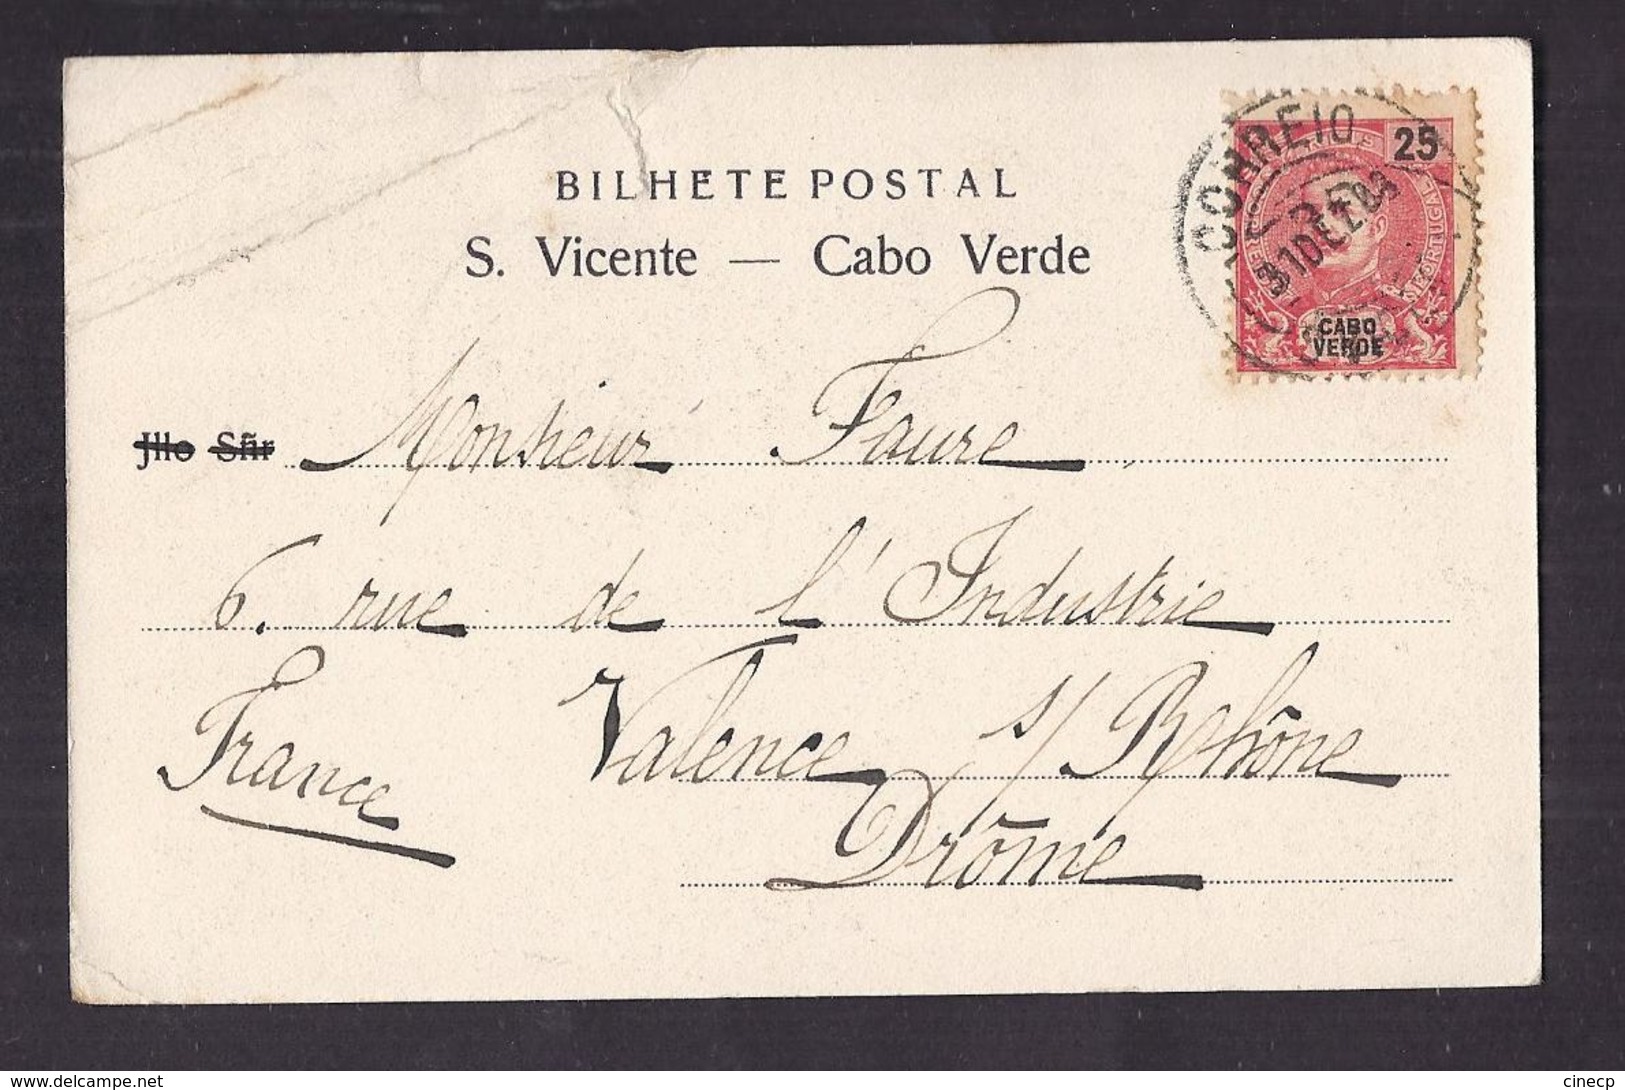 BILHETE POSTAL
S. Vicente — Cabo Verde
CORREIO
31 DEZ 03
25
PORTUGAL
CABO
VERDE
Jllo Sñr Monsieur Faure
6. rue de l'Industrie
Valence s/ Rhône
France
Drôme
delcampe.net
cinecp